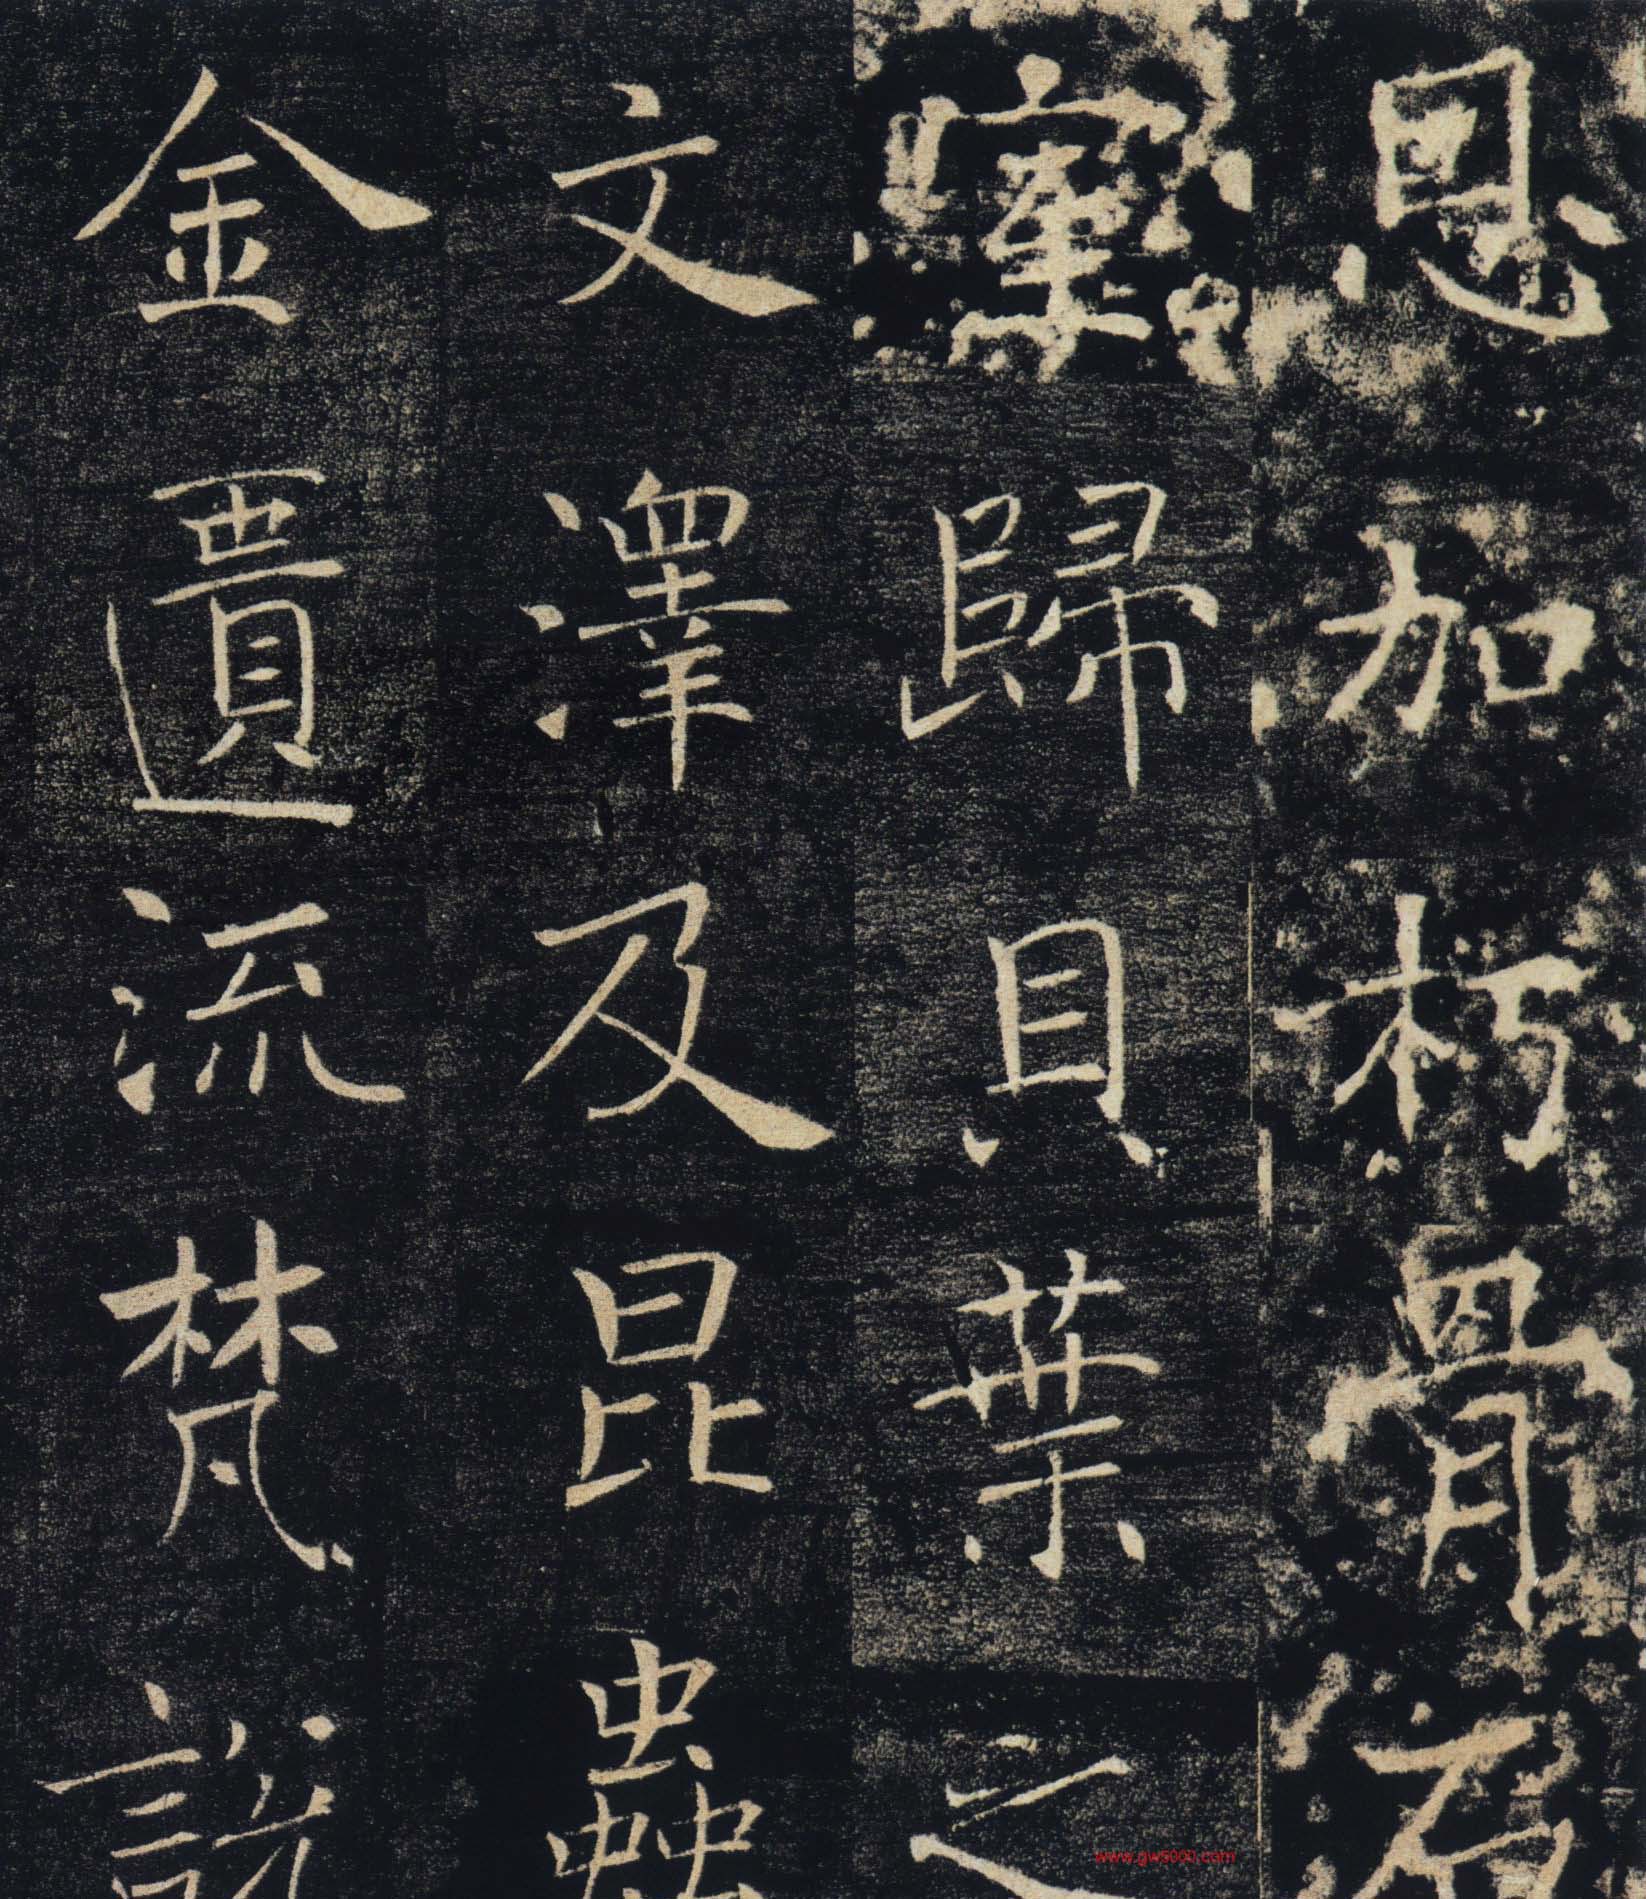 恩加朽骨石
室歸貝葉之
文澤及昆蟲
金匱流梵說
www.gw5000.com